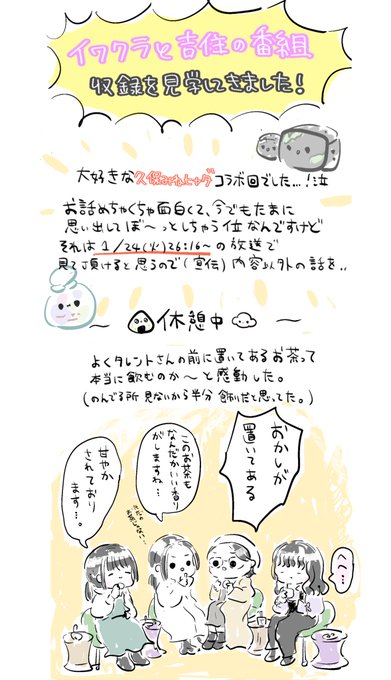 イワクラと吉住の番組
収録を見学してきました!
大好きな久保みねヒャダコラボ回でした...!泣
お話めちゃくちゃ面白くて、今でもたまに
思い出してぼ〜っとしちゃう位なんですけど
それは1/24(火)26:16〜の放送で
見て頂けると思うので(宣伝)内容以外の話を..
〜休憩中〜
よくタレントさんの前に置いてあるお茶って
本当に飲むのか〜と感動した。
(のんでる所見ないから半分飾りだと思ってた。)
おかしが
置いてある
このお茶も
なんだかいい香り
がしますね…
甘やか
されており
ます…。
へへ…